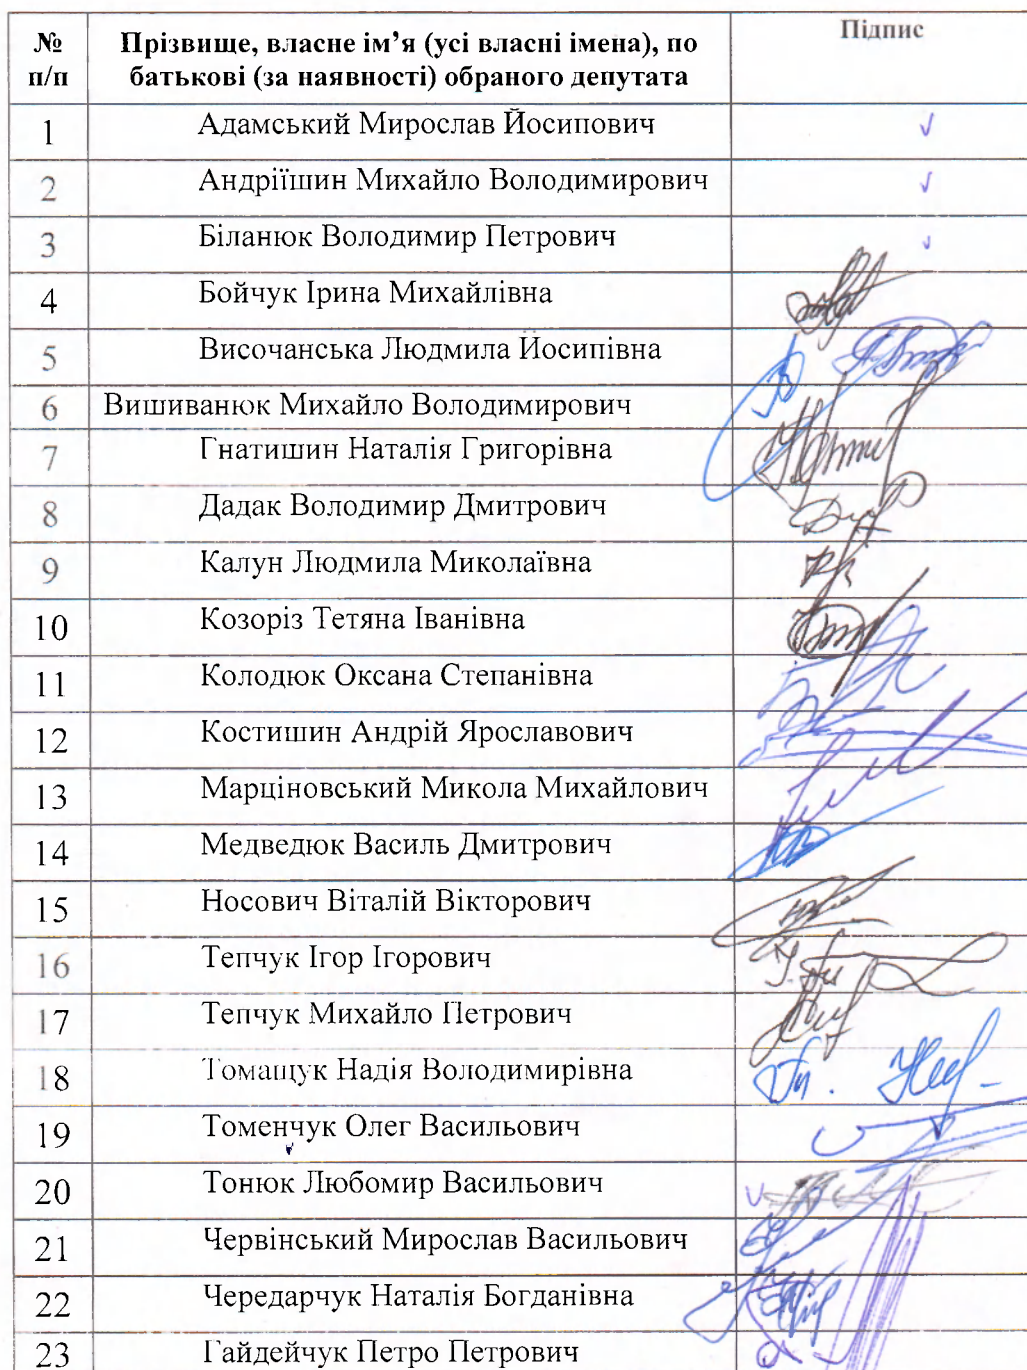 № п/п Прізвище, власне ім’я (усі власні імена), по батькові (за наявності) обраного депутата Підпис
1 Адамський Мирослав Йосипович
2 Андріїшин Михайло Володимирович
3 Біланюк Володимир Петрович
4 Бойчук Ірина Михайлівна
5 Височанська Людмила Йосипівна
6 Вишиванюк Михайло Володимирович
7 Гнатишин Наталія Григорівна
8 Дадак Володимир Дмитрович
9 Калун Людмила Миколаївна
10 Козоріз Тетяна Іванівна
11 Колодюк Оксана Степанівна
12 Костишин Андрій Ярославович
13 Марціновський Микола Михайлович
14 Медведюк Василь Дмитрович
15 Носович Віталій Вікторович
16 Тепчук Ігор Ігорович
17 Тепчук Михайло Петрович
18 Томащук Надія Володимирівна
19 Томенчук Олег Васильович
20 Тонюк Любомир Васильович
21 Червінський Мирослав Васильович
22 Чередарчук Наталія Богданівна
23 Гайдейчук Петро Петрович